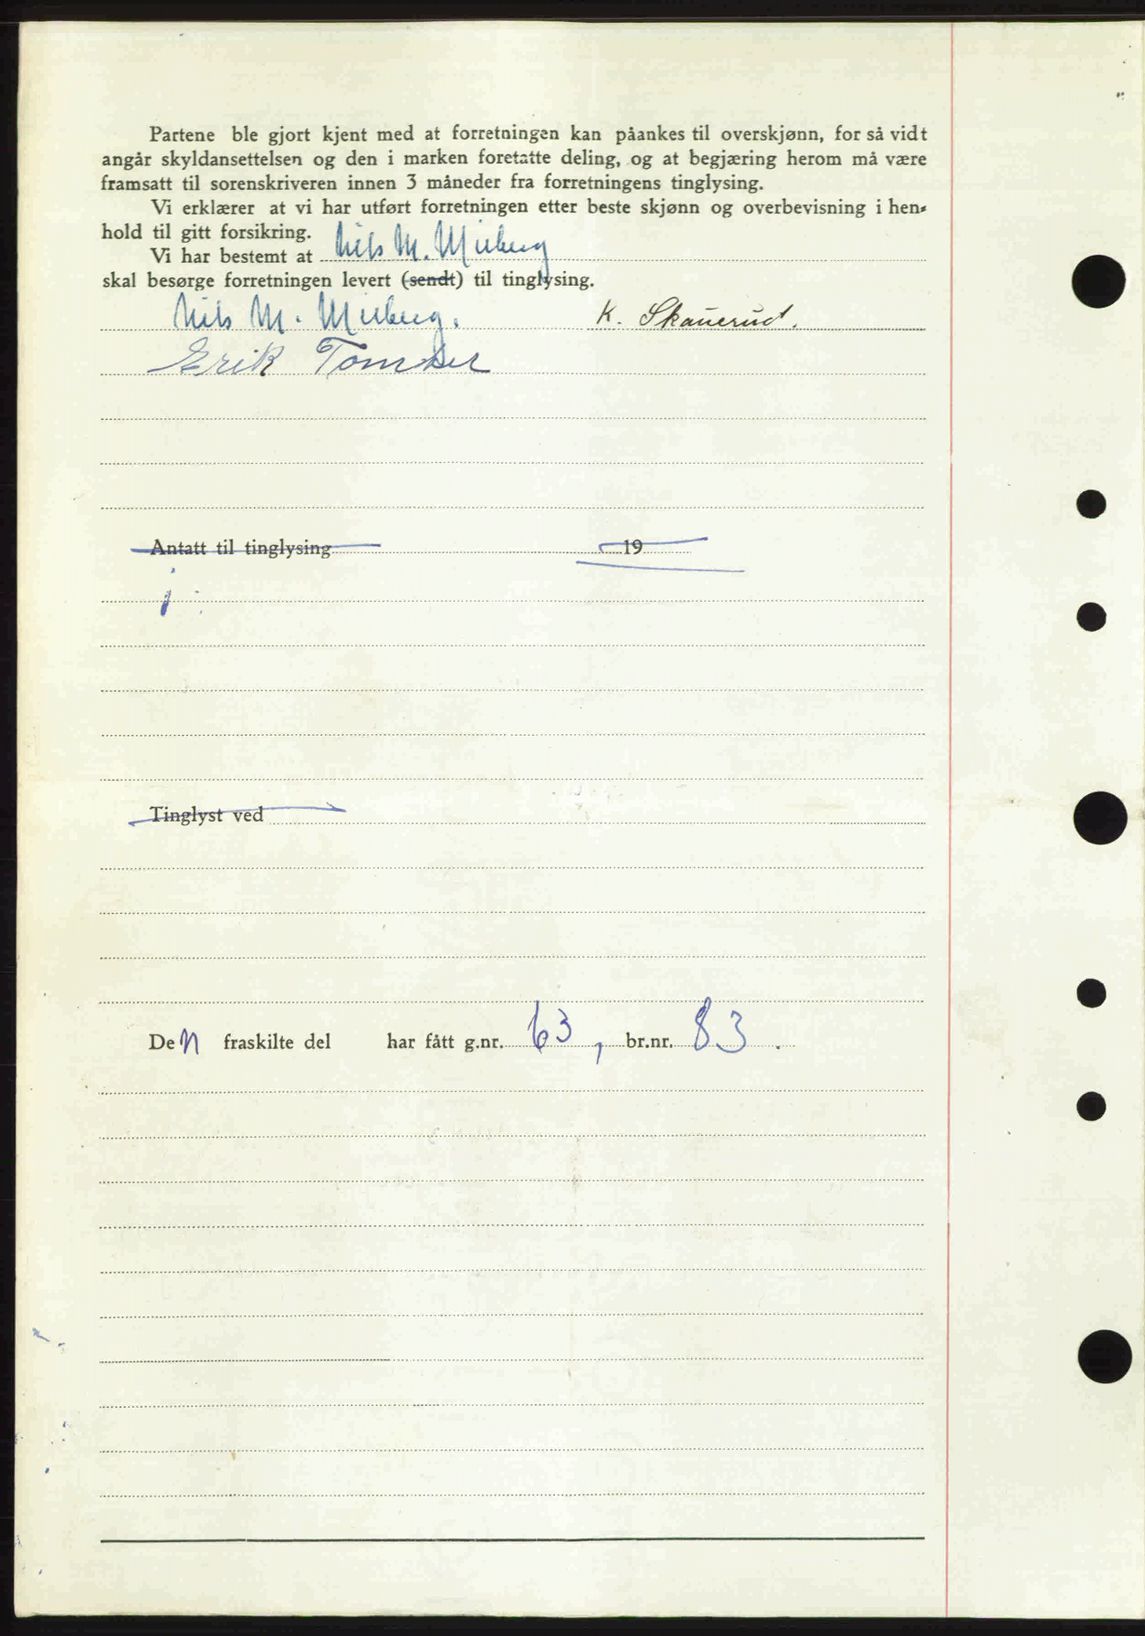 Partene ble gjort kjent med at forretningen kan påankes til overskjønn, for så vidt
angår skyldansettelsen og den i marken foretatte deling, og at begjæring herom må være
framsatt til sorenskriveren innen 3 måneder fra forretningens tinglysing.
Vi erklærer at vi har utført forretningen etter beste skjønn og overbevisning i hen-
hold til gitt forsikring.
Vi har bestemt at Nils M.
skal besørge forretningen levert (sendt) til tinglysing.
Nils M. K. Skauerud.
Erik
Antatt til tinglysing 19
Tinglyst ved
Den fraskilte del har fått g.nr. 63, br.nr. 83.